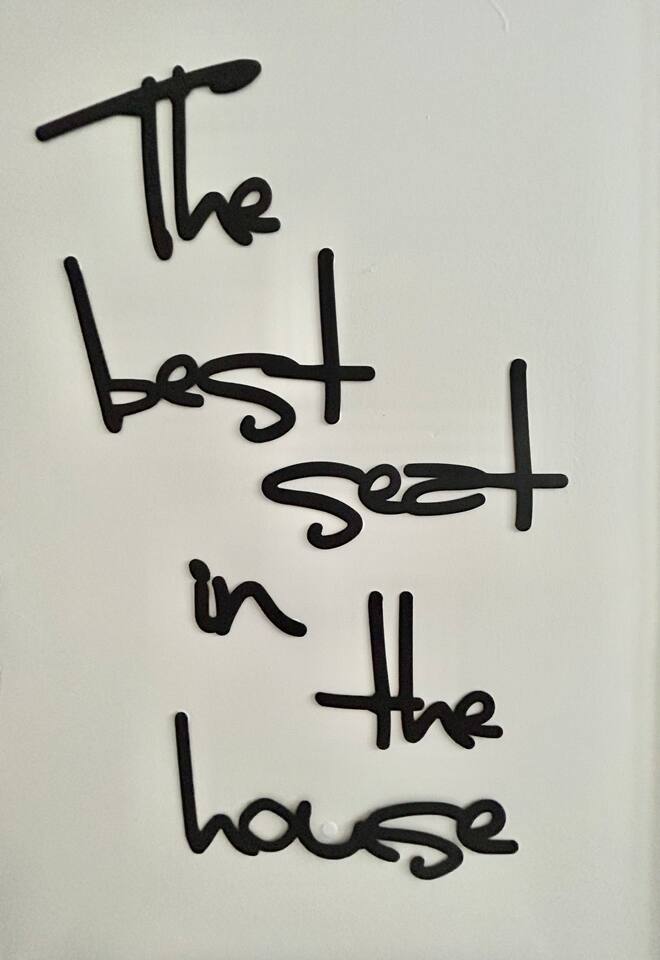 The
best
seat
in
the
house